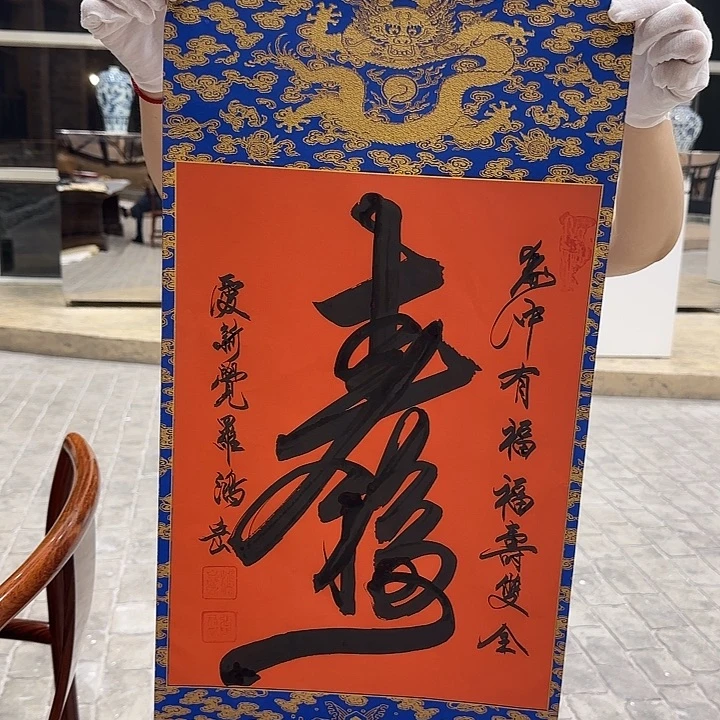 壽中有福福壽雙全
壽
愛新覺羅鴻岳